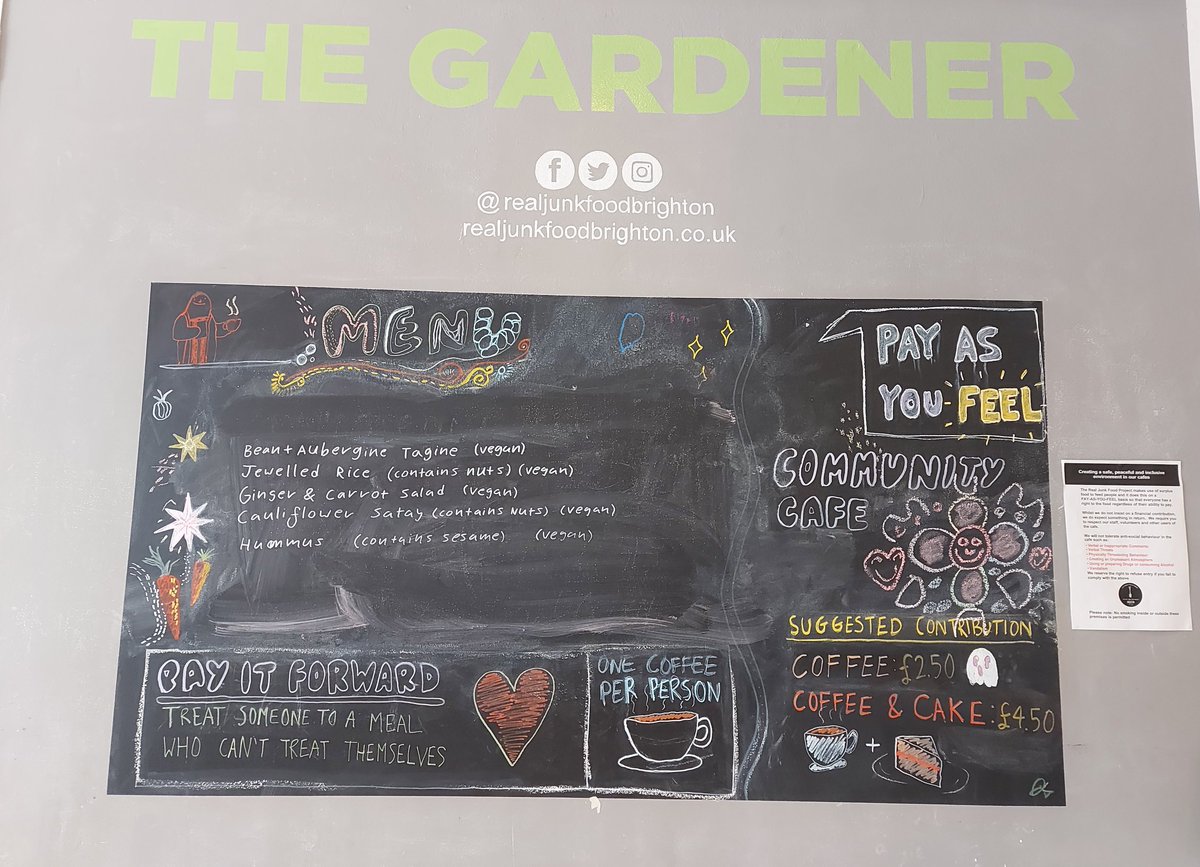 THE GARDENER
@realjunkfoodbrighton
realjunkfoodbrighton.co.uk
MENU
Bean + Aubergine Tagine (vegan)
Jewelled Rice (contains nuts) (vegan)
Ginger & Carrot Salad (vegan)
Cauliflower Satay (contains nuts) (vegan)
Hummus (contains sesame) (vegan)
PAY IT FORWARD
TREAT SOMEONE TO A MEAL
WHO CAN'T TREAT THEMSELVES
ONE COFFEE
PER PERSON
PAY AS
YOU FEEL
COMMUNITY
CAFE
SUGGESTED CONTRIBUTION
COFFEE: £2.50
COFFEE & CAKE: £4.50
+
Creating a safe, peaceful and inclusive
environment in our cafes
The Real Junk Food Project makes use of surplus
food to feed people and it does this on a
PAY-AS-YOU-FEEL basis so that everyone has a
right to the food regardless of their ability to pay.
Whilst we do not insist on a financial contribution,
we do expect something in return. We require you
to respect our staff, volunteers and other users of
the cafe.
We will not tolerate anti-social behaviour in the
cafe such as:
• Verbal or Inappropriate Comments
• Verbal Threats
• Physically Threatening Behaviour
• Creating an Unpleasant Atmosphere
• Using or preparing Drugs or consuming Alcohol
• Vandalism
We reserve the right to refuse entry if you fail to
comply with the above
Please note: No smoking inside or outside these
premises is permitted